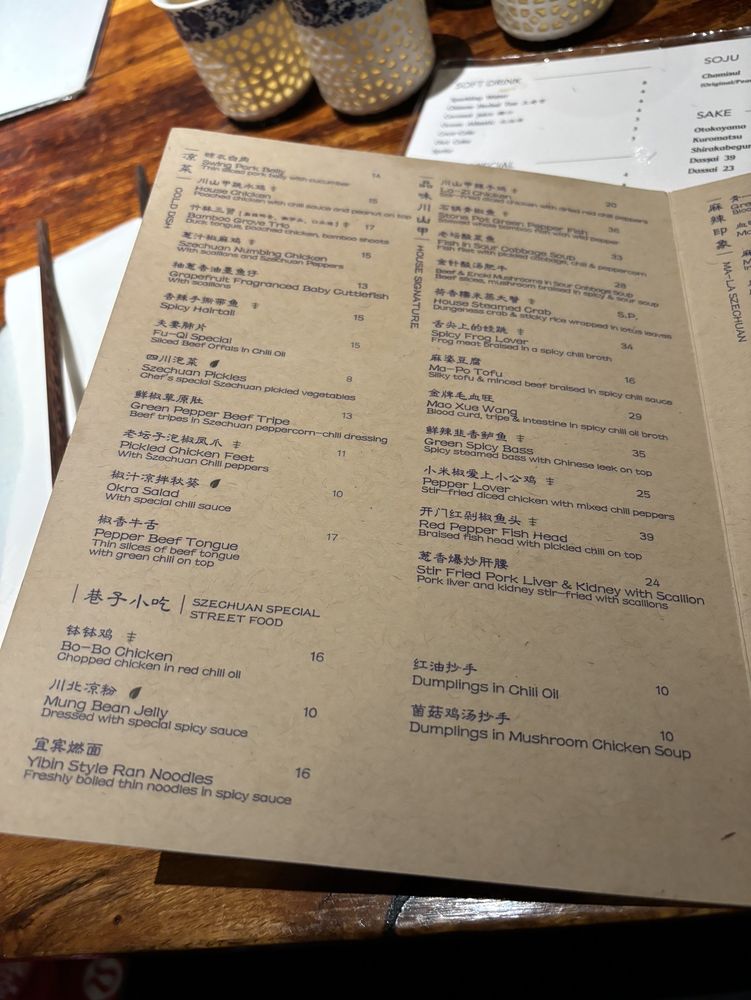 SOJU
Chamisul
SOFT DRINK
SAKE
Otokoyama
Kuromatsu
Dassai 39
Dassai 23
凉菜
COLD DISH
Swing Pork Belly 14
Thin sliced pork belly with cucumber
川山甲跳水鸡
House Chicken 15
Poached chicken with chili sauce and peanut on top
Bamboo Grove Trio 17
Duck tongue, poached chicken, bamboo shoots
葱汁椒麻鸡
Szechuan Numbing Chicken 15
With scallions and Szechuan Peppers
柚葱香油墨鱼仔
Grapefruit Fragranced Baby Cuttlefish
With scallions
香辣手撕带鱼
Spicy Hairtail 15
夫妻肺片
Fu-Qi Special 15
Sliced Beef Offals in Chili Oil
四川泡菜
Szechuan Pickles 8
Chef's special Szechuan pickled vegetables
鲜椒草原肚
Green Pepper Beef Tripe 13
Beef tripes in Szechuan peppercorn-chili dressing
老坛子泡椒凤爪
Pickled Chicken Feet 11
With Szechuan Chili peppers
椒汁凉拌秋葵
Okra Salad 10
With special chili sauce
椒香牛舌
Pepper Beef Tongue 17
Thin slices of beef tongue
with green chili on top
巷子小吃
SZECHUAN SPECIAL
STREET FOOD
钵钵鸡
Bo-Bo Chicken 16
Chopped chicken in red chili oil
川北凉粉
Mung Bean Jelly 10
Dressed with special spicy sauce
宜宾燃面
Yibin Style Ran Noodles 16
Freshly boiled thin noodles in spicy sauce
品味川山甲
HOUSE SIGNATURE
川山甲辣子鸡
La-Zi Chicken 20
Stir-fried diced chicken with dried red chili peppers
石锅青椒鱼
Stone Pot Green Pepper Fish 36
老坛酸菜鱼
Fish in Sour Cabbage Soup 33
Fish filet with pickled cabbage, chili & peppercorn
金针酸汤肥牛
Beef & Enoki Mushrooms in Sour Cabbage Soup 28
Beef slices, mushroom braised in spicy & sour soup
荷香糯米蒸大蟹
House Steamed Crab S.P.
Dungeness crab & sticky rice wrapped in lotus leaves
舌尖上的蛙跳
Spicy Frog Lover 34
Frog meat braised in a spicy chili broth
麻婆豆腐
Ma-Po Tofu 16
Silky tofu & minced beef braised in spicy chili sauce
金牌毛血旺
Mao Xue Wang 29
Blood curd, tripe & intestine in spicy chili oil broth
鲜辣韭香鲈鱼
Green Spicy Bass 35
Spicy steamed bass with Chinese leek on top
小米椒爱上小公鸡
Pepper Lover 25
Stir-fried diced chicken with mixed chili peppers
开门红剁椒鱼头
Red Pepper Fish Head 39
Braised fish head with pickled chili on top
葱香爆炒肝腰 24
Stir Fried Pork Liver & Kidney with Scallion
Pork liver and kidney stir-fried with scallions
红油抄手
Dumplings in Chili Oil 10
菌菇鸡汤抄手
Dumplings in Mushroom Chicken Soup 10
麻辣印象
MA-LA SZECHUAN